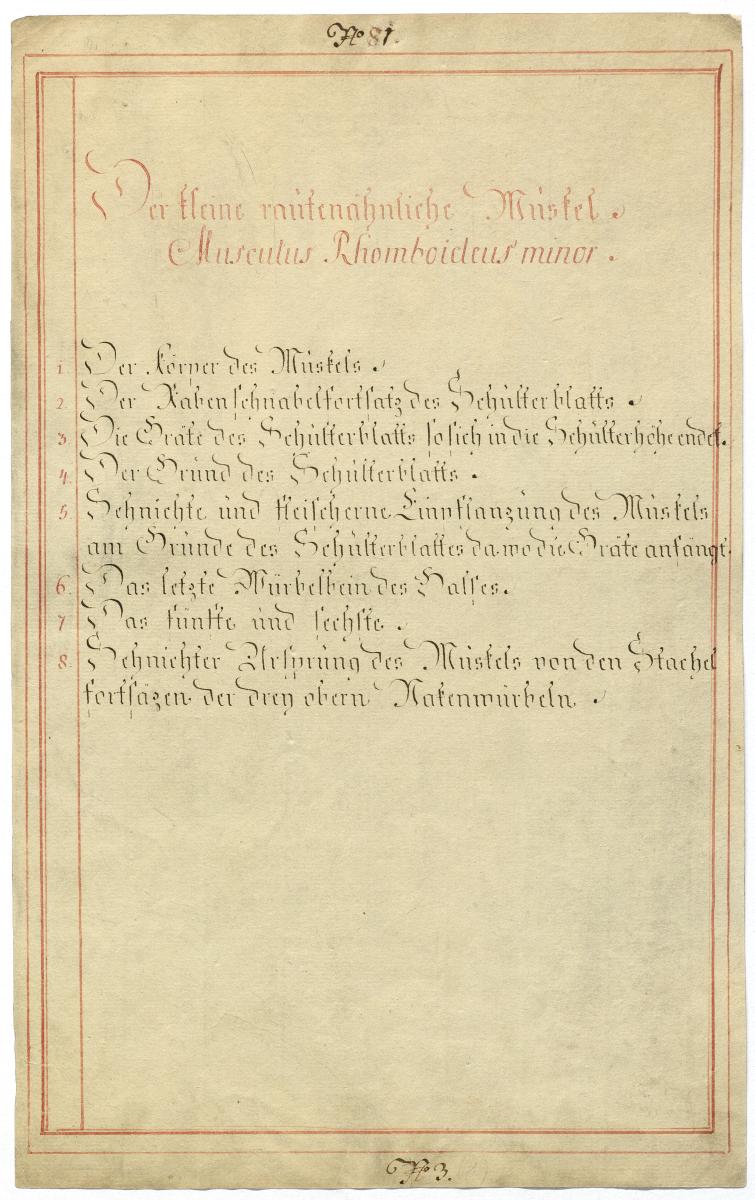 No 81.
Der kleine rautenähnliche Muskel.
Musculus Rhomboideus minor.
1. Der Körper des Muskels.
2. Der Rabenschnabelfortsatz des Schulterblatts.
3. Die Gräte des Schulterblatts so sich in die Schulterhöhe endet.
4. Der Grund des Schulterblatts.
5. Sehnichte und fleischerne Einpflanzung des Muskels
am Grunde des Schulterblattes da wo die Gräte anfängt.
6. Das letzte Würbelbein des Halses.
7 Das fünfte und sechste.
8. Sehnichter Ursprung des Muskels von den Stachel
fortsäzen der drey obern Nakenwürbeln.
No 3.